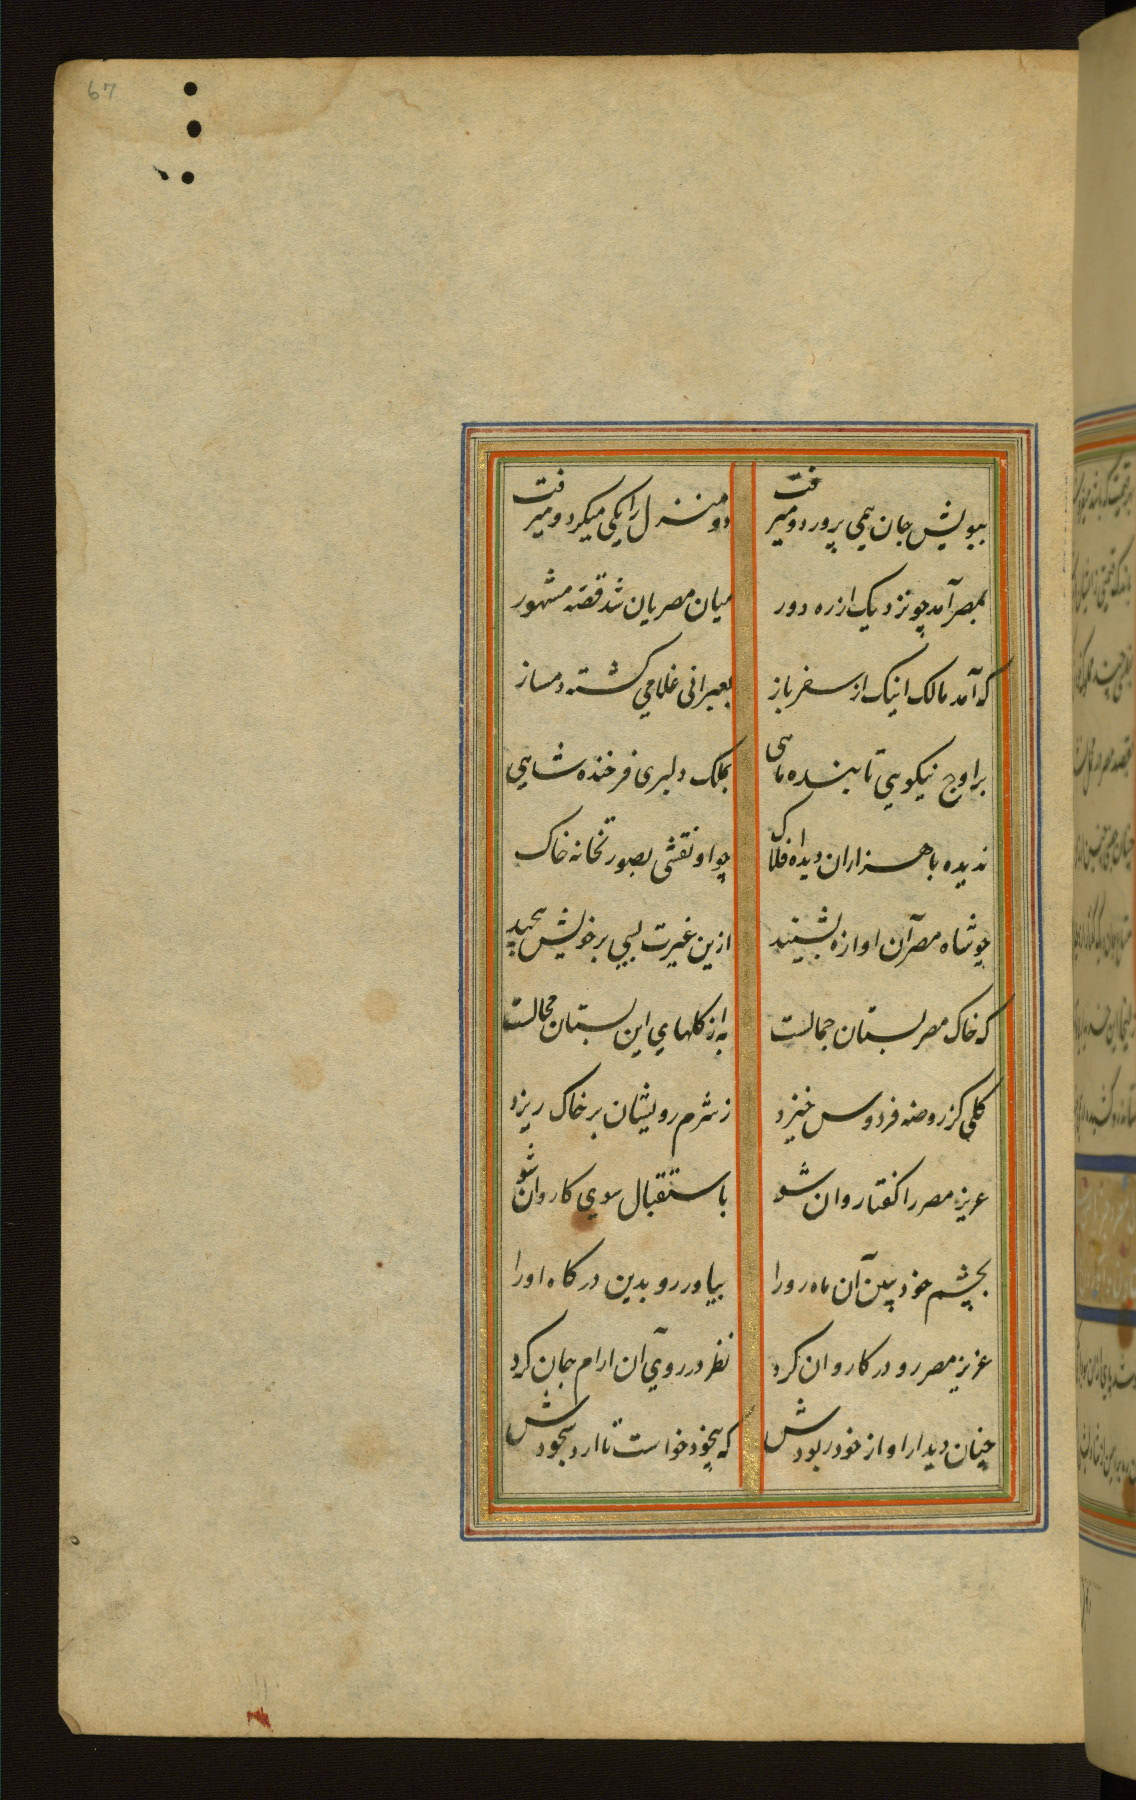 67
ببویش جان همی پرورد و میرفت
دو منزل را یکی میکرد و میرفت
بمصر آمد چو نزدیک از ره دور
میان مصریان شد قصه مشهور
که آمد مالک اینک از سفر باز
بعبرانی غلامی کشته دمساز
بر اوج نیکویی تابنده ماهی
بملک دلبری فرخنده شاهی
ندیده با هزاران دیده افلاک
چو او نقشی بصورتخانه خاک
چو شاه مصر آن اوازه بشنید
ازین غیرت بسی بر خویش پیچید
که خاک مصر بستان جمالست
به از کلهای این بستان محالست
کلی کز روضه فردوس خیزد
ز شرم رویشان بر خاک ریزد
عزیز مصر را کفتا روان شو
باستقبال سوی کاروان شو
بچشم خود ببین آن ماه رو را
بیاور رو بدین درکاه او را
عزیز مصر رو در کاروان کرد
نظر در روی آن ارام جان کرد
چنان دیدار او از خود ربودش
که بیخود خواست تا ارد سجودش